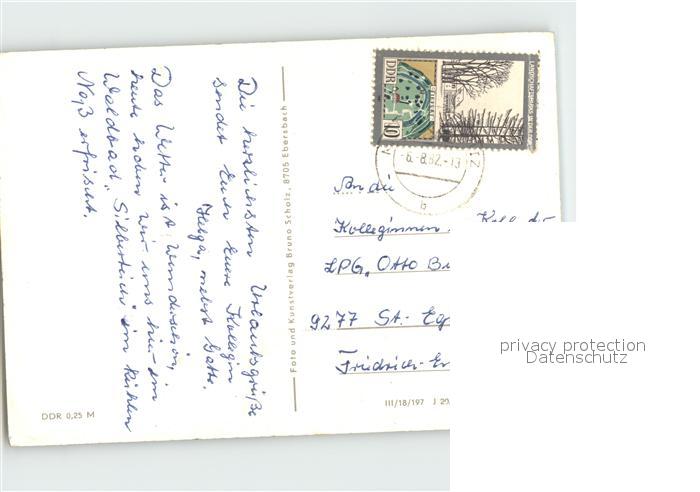 Die herzlichsten Urlaubsgrüße
sendet Euer Eure Kollegin
Helga, nebst Gatte.
Das Wetter ist wunderschön,
heute haben wir uns hier im
Waldbad „Silberteich" im kühlen
Naß erfrischt.
DDR 0,25 M
Foto und Kunstverlag Bruno Scholz, 8705 Ebersbach
DDR
10
-6.-8.82.-13
b
An die
Kolleginnen
LPG „Otto
9277 St.-Eg
Friedrich-En
III/18/197 J
privacy protection
Datenschutz